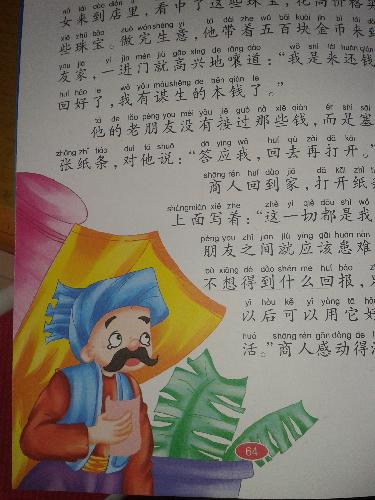 女来到店里，看中了这些珠宝，花高价格买
xiē zhū bǎo zuò wán shēng yi tā dài zhe wǔ bǎi kuài jīn bì lái dào
些珠宝。做完生意，他带着五百块金币来到
yǒu jiā yí jìn mén jiù gāo xìng de rǎng dào wǒ shì lái huán qián
友家，一进门就高兴地嚷道：“我是来还钱
huí hǎo le wǒ yǒu móu shēng de běn qián le
回好了，我有谋生的本钱了。”
tā de lǎo péng you méi yǒu jiē guò nà xiē qián ér shì sāi
他的老朋友没有接过那些钱，而是塞
zhāng zhǐ tiáo duì tā shuō dā ying wǒ huí qù zài dǎ kāi
张纸条，对他说：“答应我，回去再打开。”
shāng rén huí dào jiā dǎ kāi zhǐ
商人回到家，打开纸
shàng miàn xiě zhe zhè yí qiè dōu shì wǒ
上面写着：“这一切都是我
péng you zhī jiān jiù yīng gāi huàn nàn
朋友之间就应该患难
bù xiǎng dé dào shén me huí bào
不想得到什么回报，
yǐ hòu kě yǐ yòng tā hǎo
以后可以用它好
huó shāng rén gǎn dòng de
活。”商人感动得
64